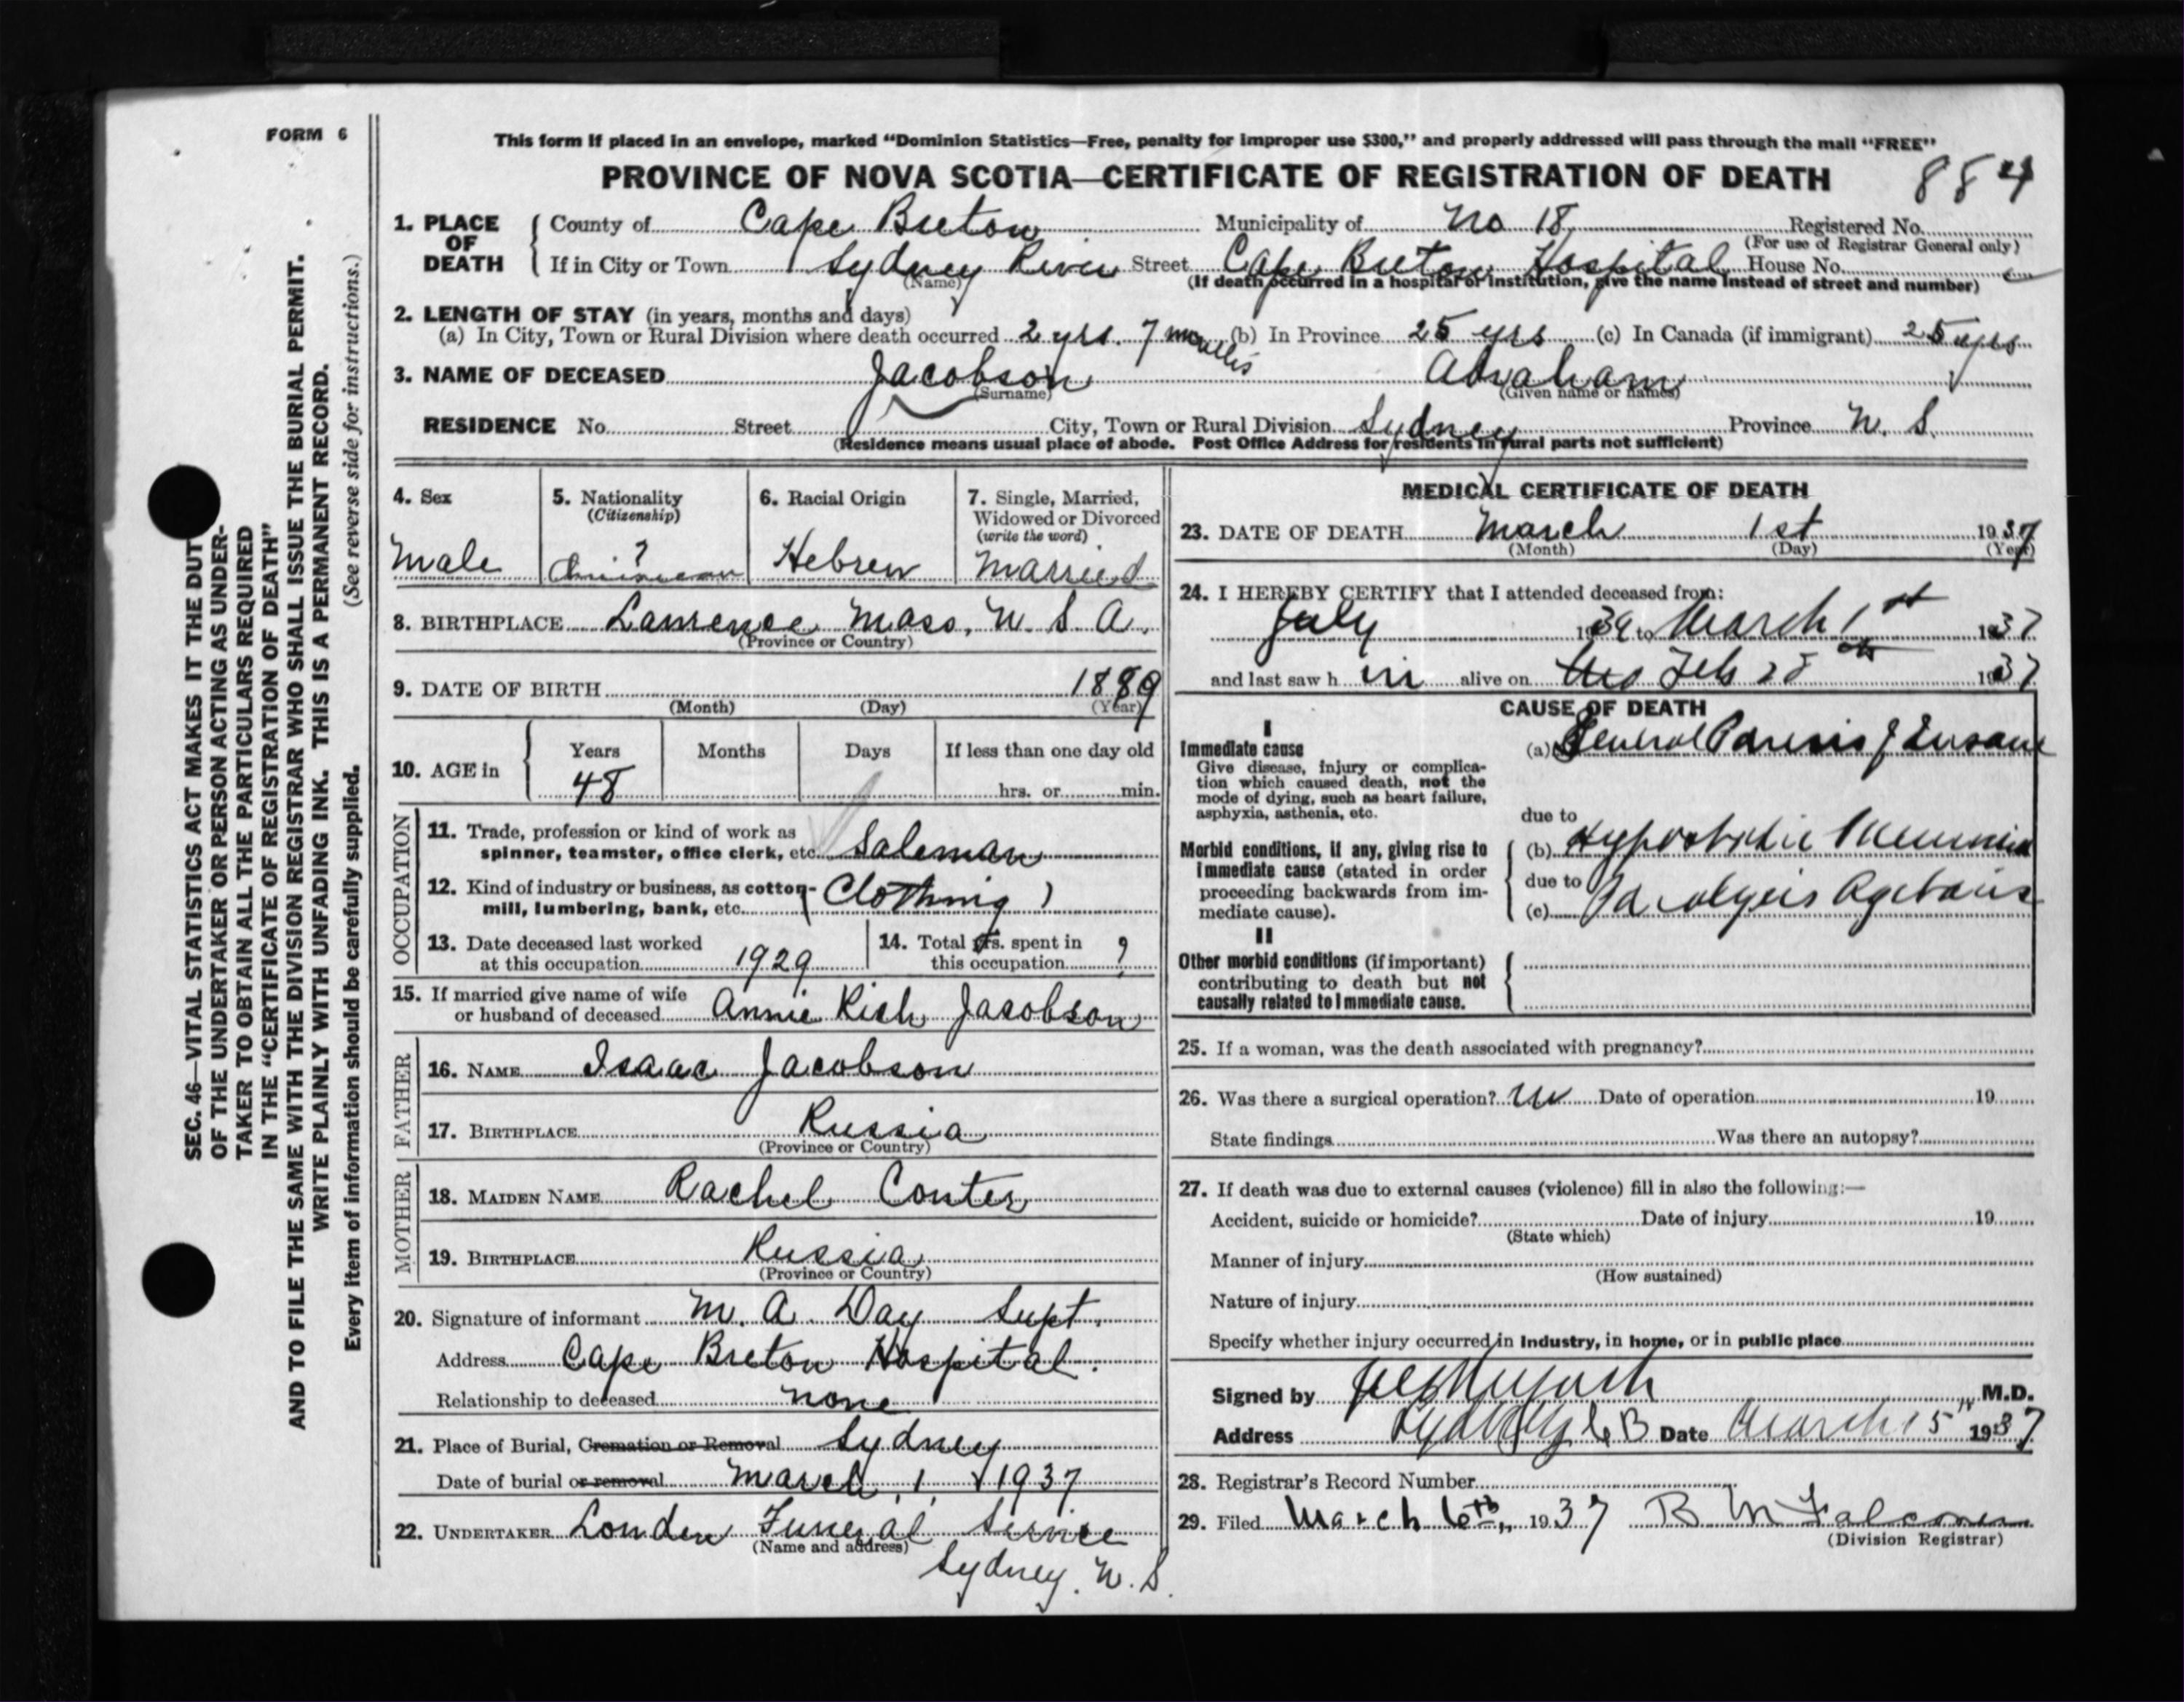 FORM 6
This form if placed in an envelope, marked “Dominion Statistics—Free, penalty for improper use $300,” and properly addressed will pass through the mail “FREE”
PROVINCE OF NOVA SCOTIA—CERTIFICATE OF REGISTRATION OF DEATH 884
1. PLACE OF DEATH
County of Cape Breton Municipality of No 18 Registered No.
(For use of Registrar General only)
If in City or Town Sydney River Street Cape Breton Hospital House No.
(Name) (If death occurred in a hospital or institution, give the name instead of street and number)
2. LENGTH OF STAY (in years, months and days)
(a) In City, Town or Rural Division where death occurred 2 yrs. 7 months (b) In Province 25 yrs (c) In Canada (if immigrant) 25 yrs
3. NAME OF DECEASED Jacobson Abraham
(Surname) (Given name or names)
RESIDENCE No. Street City, Town or Rural Division Sydney Province N. S.
(Residence means usual place of abode. Post Office Address for residents in rural parts not sufficient)
4. Sex
Male
5. Nationality
(Citizenship)
?
6. Racial Origin
Hebrew
7. Single, Married,
Widowed or Divorced
(write the word)
Married
8. BIRTHPLACE Lawrence Mass. U S A.
(Province or Country)
9. DATE OF BIRTH 1889
(Month) (Day) (Year)
10. AGE in
Years Months Days If less than one day old
48 hrs. or min.
OCCUPATION
11. Trade, profession or kind of work as
spinner, teamster, office clerk, etc. Saleman
12. Kind of industry or business, as cotton-
mill, lumbering, bank, etc. (Clothing)
13. Date deceased last worked
at this occupation 1929
14. Total yrs. spent in
this occupation ?
15. If married give name of wife
or husband of deceased Annie Rich Jacobson
FATHER
16. NAME Isaac Jacobson
17. BIRTHPLACE Russia
(Province or Country)
MOTHER
18. MAIDEN NAME Rachel Conter
19. BIRTHPLACE Russia
(Province or Country)
20. Signature of informant M. A. Day Supt.
Address Cape Breton Hospital.
Relationship to deceased none
21. Place of Burial, Cremation or Removal Sydney
Date of burial or removal March 1, 1937
22. UNDERTAKER London Funeral Service
(Name and address)
Sydney. N. S.
MEDICAL CERTIFICATE OF DEATH
23. DATE OF DEATH March 1st 1937
(Month) (Day) (Year)
24. I HEREBY CERTIFY that I attended deceased from:
July 1934 to March 1st 1937
and last saw h im alive on Feb 28th 1937
CAUSE OF DEATH
I
Immediate cause
Give disease, injury or complica-
tion which caused death, not the
mode of dying, such as heart failure,
asphyxia, asthenia, etc.
(a) General Paresis of Insane
due to
Morbid conditions, if any, giving rise to
immediate cause (stated in order
proceeding backwards from im-
mediate cause).
(b) Hypostatic Pneumonia
due to
(c) Paralysis Agitans
II
Other morbid conditions (if important)
contributing to death but not
causally related to immediate cause.
25. If a woman, was the death associated with pregnancy?
26. Was there a surgical operation? Date of operation 19
State findings Was there an autopsy?
27. If death was due to external causes (violence) fill in also the following:—
Accident, suicide or homicide? Date of injury 19
(State which)
Manner of injury
(How sustained)
Nature of injury
Specify whether injury occurred in industry, in home, or in public place
Signed by M.D.
Address Sydney C B Date March 5th 1937
28. Registrar's Record Number
29. Filed March 6th, 1937 B M Falconer
(Division Registrar)
SEC. 46—VITAL STATISTICS ACT MAKES IT THE DUTY
OF THE UNDERTAKER OR PERSON ACTING AS UNDER-
TAKER TO OBTAIN ALL THE PARTICULARS REQUIRED
IN THE “CERTIFICATE OF REGISTRATION OF DEATH”
AND TO FILE THE SAME WITH THE DIVISION REGISTRAR WHO SHALL ISSUE THE BURIAL PERMIT.
WRITE PLAINLY WITH UNFADING INK. THIS IS A PERMANENT RECORD.
Every item of information should be carefully supplied. (See reverse side for instructions.)